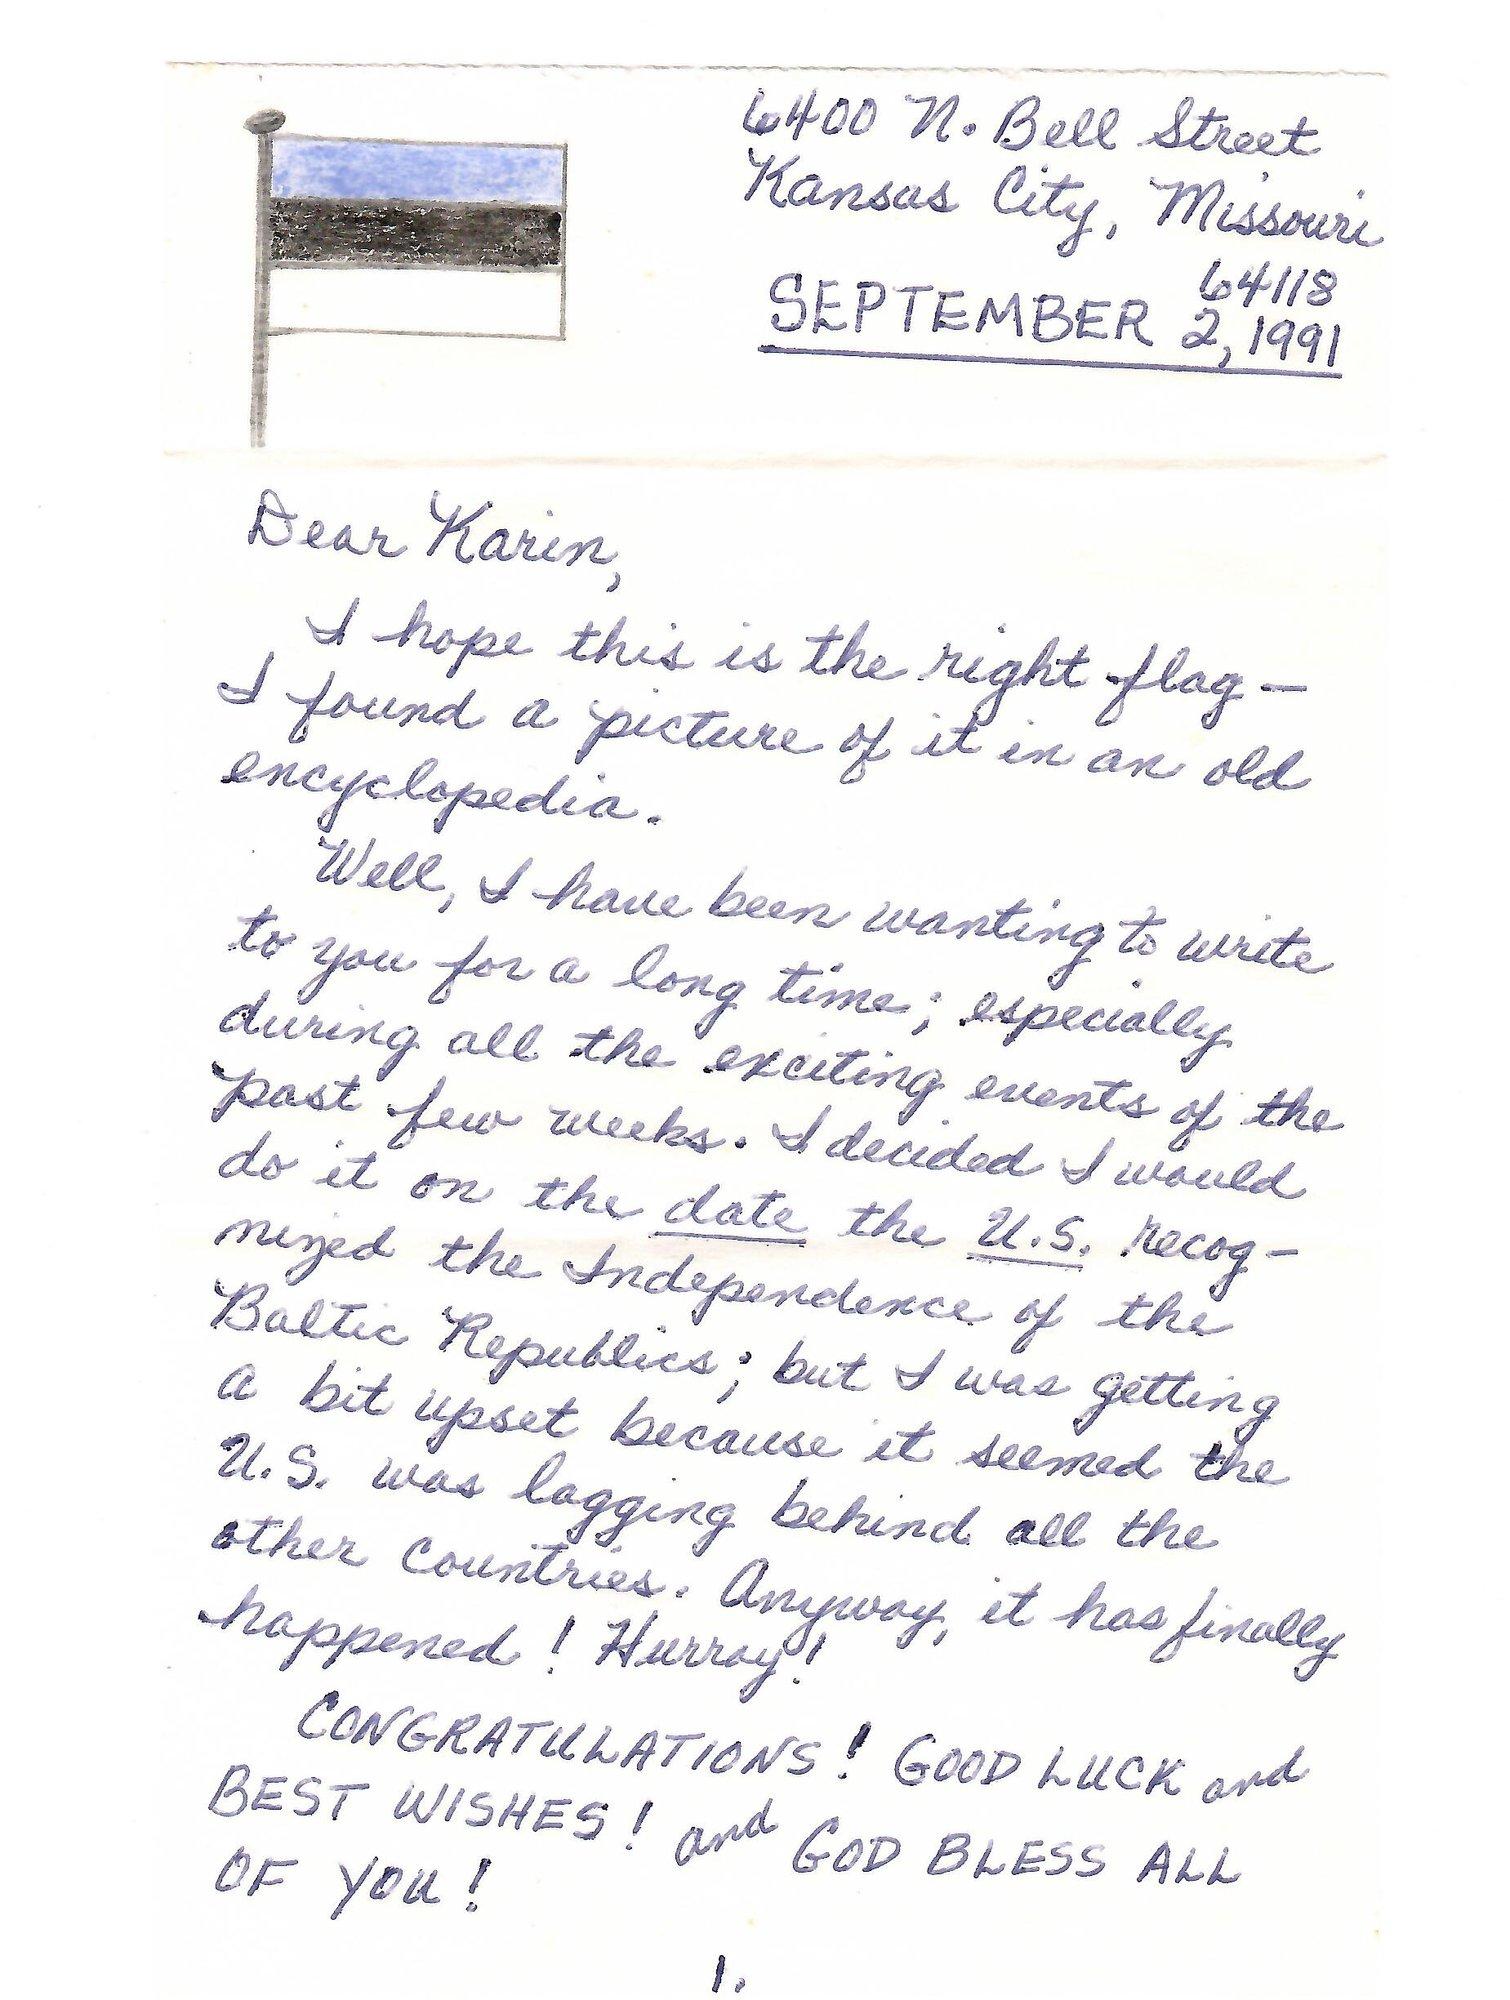 6400 N. Bell Street
Kansas City, Missouri
64118
SEPTEMBER 2, 1991
Dear Karin,
I hope this is the right flag –
I found a picture of it in an old
encyclopedia.
Well, I have been wanting to write
to you for a long time; especially
during all the exciting events of the
past few weeks. I decided I would
do it on the date the U.S. recog-
nized the Independence of the
Baltic Republics; but I was getting
a bit upset because it seemed the
U.S. was lagging behind all the
other countries. Anyway, it has finally
happened! Hurray!
CONGRATULATIONS! GOOD LUCK and
BEST WISHES! and GOD BLESS ALL
OF YOU!
1.